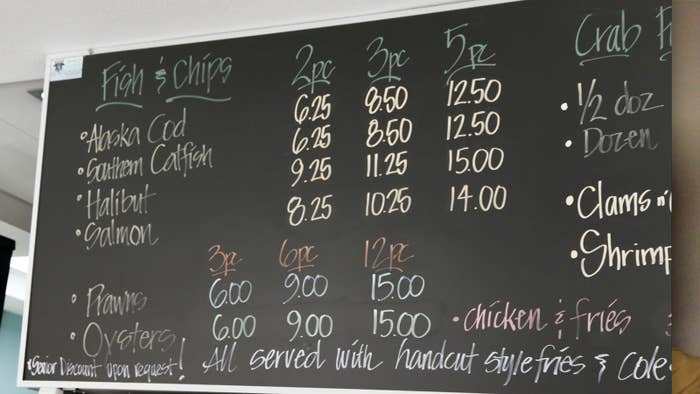 Fish & Chips 2pc 3pc 5pc
• Alaska Cod 6.25 8.50 12.50
• Southern Catfish 6.25 8.50 12.50
• Halibut 9.25 11.25 15.00
• Salmon 8.25 10.25 14.00
3pc 6pc 12pc
• Prawns 6.00 9.00 15.00
• Oysters 6.00 9.00 15.00
Crab
• 1/2 doz
• Dozen
• Clams n'
• Shrimp
• chicken & fries
*Senior Discount upon request!
All served with handcut style fries & Cole